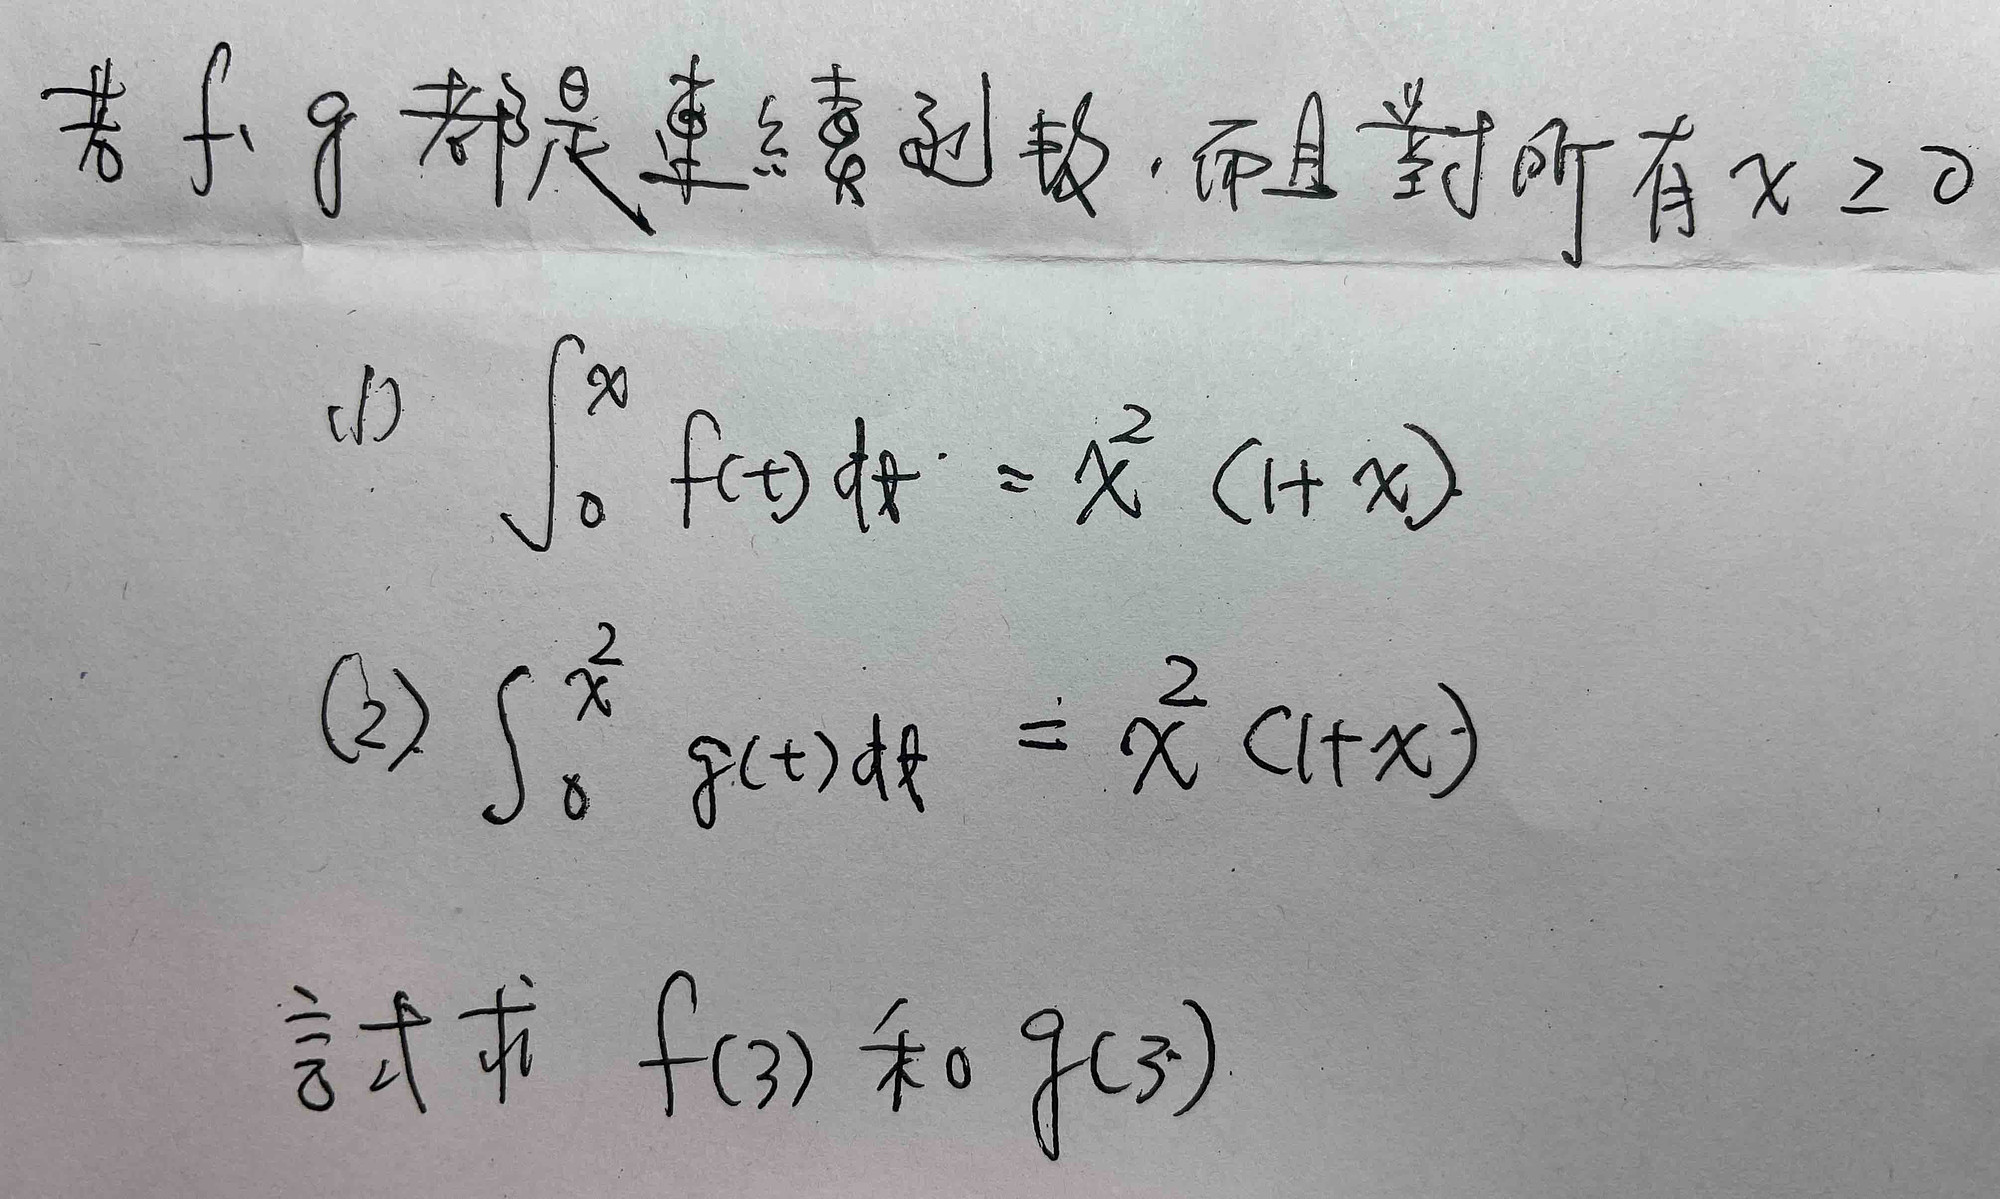 若 f、g 都是連續函數,而且對所有 x ≥ 0
(1) ∫₀ˣ f(t)dt = x² (1+x)
(2) ∫₀^x² g(t)dt = x² (1+x)
試求 f(3) 和 g(3)